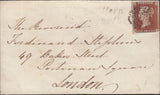 The Reverend
Ferdinand Stephens
49 Baker Street
Portman Square
London